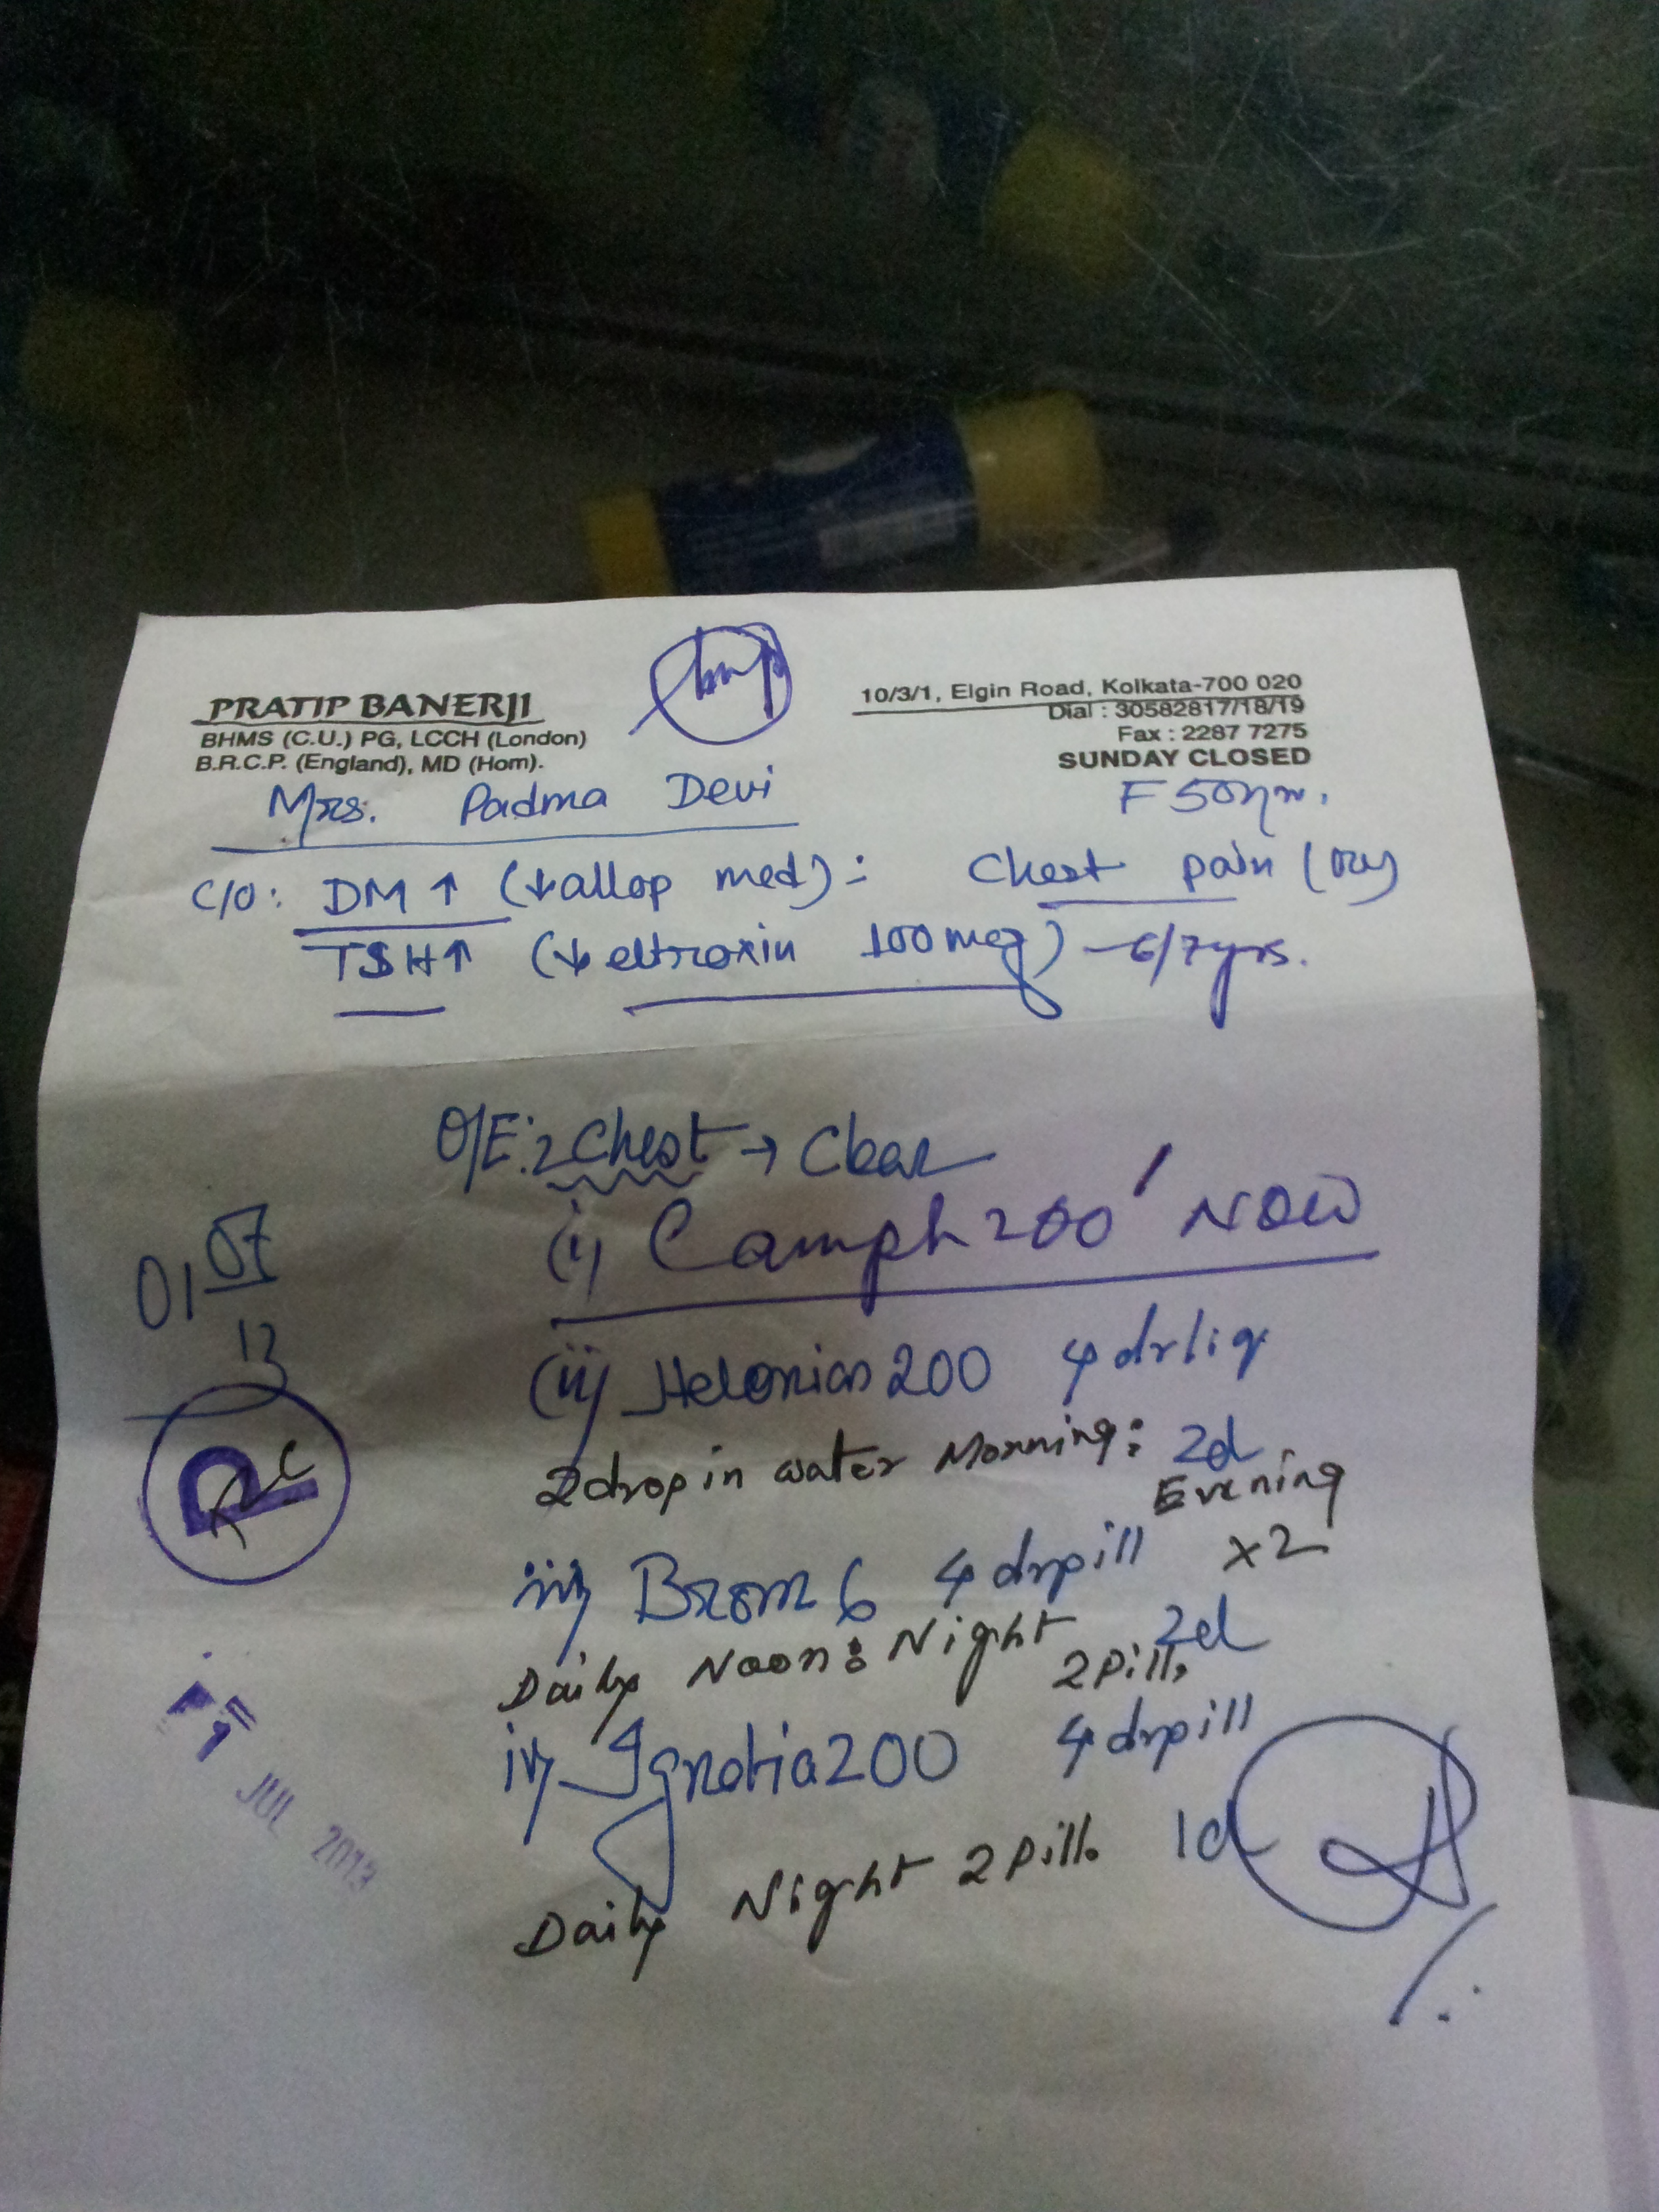 PRATIP BANERJI
BHMS (C.U.) PG, LCCH (London)
B.R.C.P. (England), MD (Hom).
10/3/1, Elgin Road, Kolkata-700 020
Dial : 30582817/18/19
Fax : 2287 7275
SUNDAY CLOSED
Mrs. Padma Devi F 50yrs.
C/O: DM ↑ (↓allop med) : Chest pain
TSH↑ (↓eltroxin 100mcg) - 6/7yrs.
O/E: Chest → Clear
(i) Camph 200 NOW
01 07 13
(ii) Helonias 200 4 dr liq
2 drop in water Morning: 2d
Evening
iii) Brom 6 4 dr pill x2
Daily Noon: Night 2 Pills 2d
iv) Ignatia 200 4 dr pill
Daily Night 2 Pill. 1d
R
1 JUL 2013